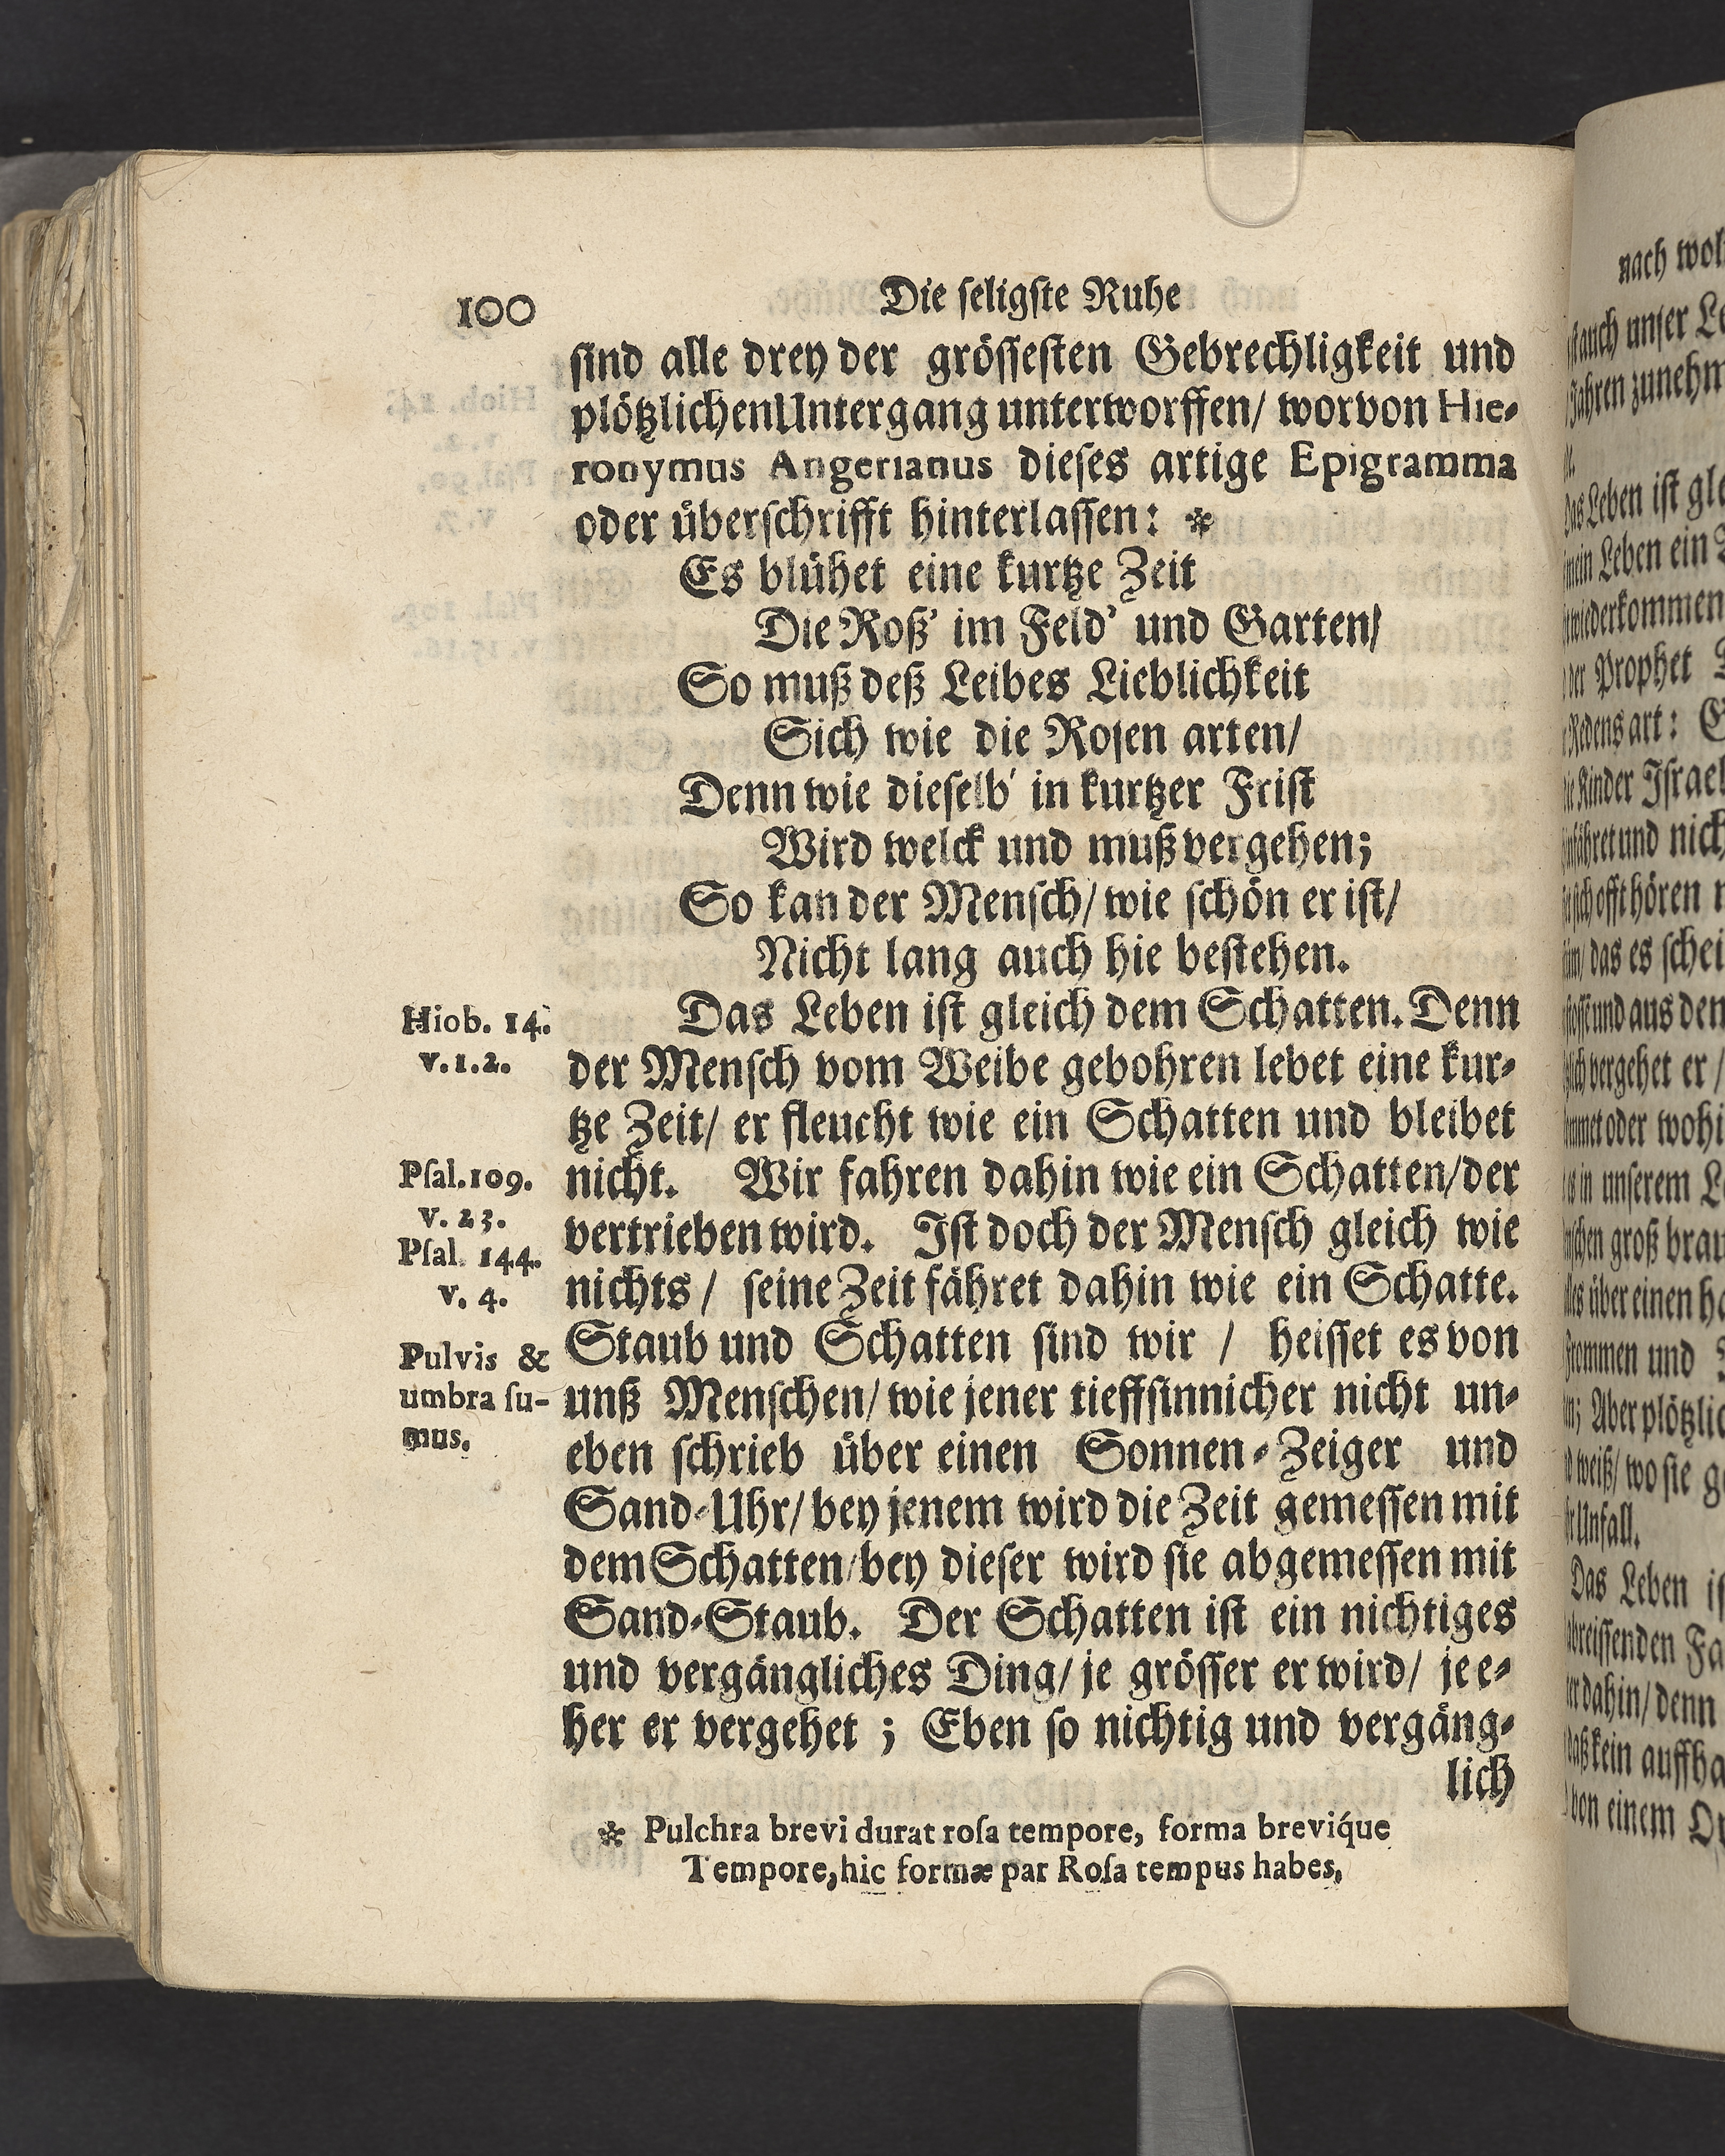 100
Die ſeligſte Ruhe
ſind alle drey der gröſſeſten Gebrechligkeit und
plötzlichen Untergang unterworffen/ worvon Hie-
ronymus Angerianus dieſes artige Epigramma
oder überſchrifft hinterlaſſen: *
Es blühet eine kurtze Zeit
Die Roß' im Feld' und Garten/
So muß deß Leibes Lieblichkeit
Sich wie die Roſen arten/
Denn wie dieſelb' in kurtzer Friſt
Wird welck und muß vergehen;
So kan der Menſch/ wie ſchön er iſt/
Nicht lang auch hie beſtehen.
Das Leben iſt gleich dem Schatten. Denn
der Menſch vom Weibe gebohren lebet eine kur-
tze Zeit/ er fleucht wie ein Schatten und bleibet
nicht. Wir fahren dahin wie ein Schatten/ der
vertrieben wird. Iſt doch der Menſch gleich wie
nichts / ſeine Zeit fähret dahin wie ein Schatte.
Staub und Schatten ſind wir / heiſſet es von
unß Menſchen/ wie jener tieffſinnicher nicht un-
eben ſchrieb über einen Sonnen-Zeiger und
Sand-Uhr/ bey jenem wird die Zeit gemeſſen mit
dem Schatten/ bey dieſer wird ſie abgemeſſen mit
Sand-Staub. Der Schatten iſt ein nichtiges
und vergängliches Ding/ je gröſſer er wird/ je e-
her er vergehet ; Eben ſo nichtig und vergäng-
lich
Hiob. 14.
v. 1. 2.
Pſal. 109.
v. 23.
Pſal. 144.
v. 4.
Pulvis &
umbra ſu-
mus.
* Pulchra brevi durat roſa tempore, forma brevíque
Tempore, hic formæ par Roſa tempus habes,
nach
auch unſer
Jahren
Leben iſt
mein Leben ein
wiederkommen
der Prophet
Redens art:
Kinder Iſrael
und
offt hören
das es
und aus
vergehet er /
oder
in unſerem
groß
über einen
und
Aber
weiß/ wo ſie
Unfall.
Das Leben
dahin/ denn
kein
von einem